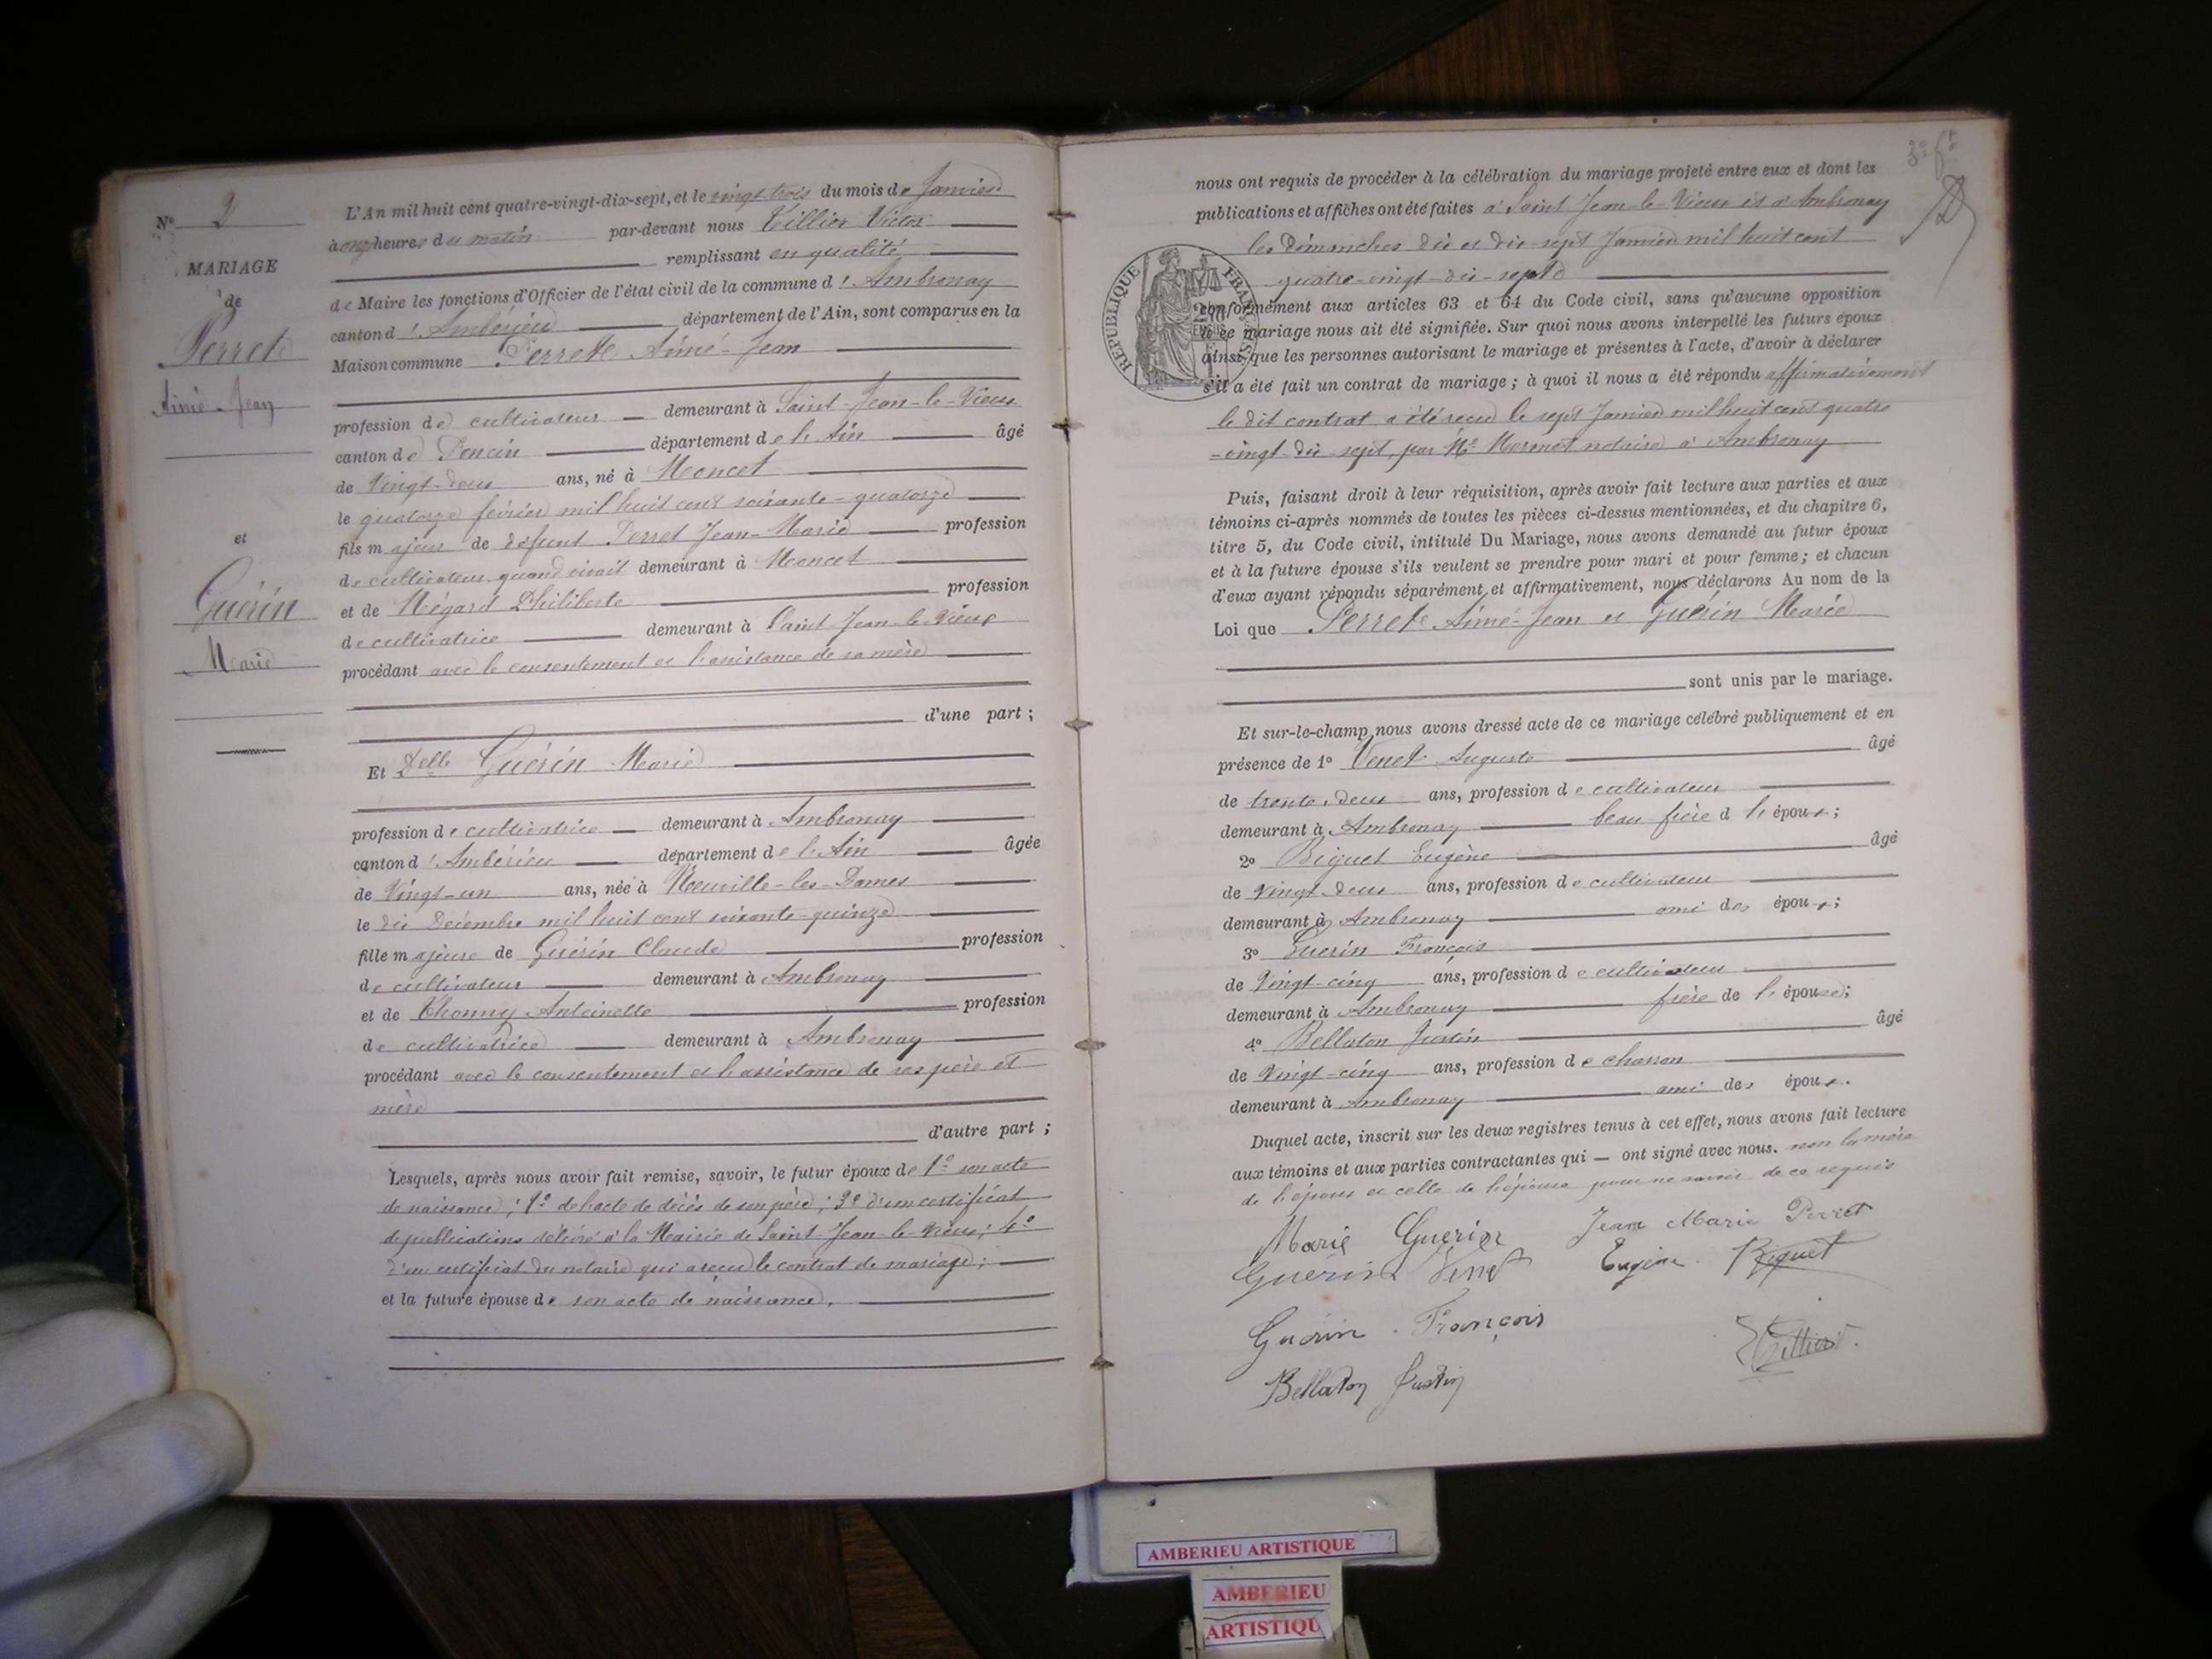 N° 2
MARIAGE
de
Perret
Aimé-Jean
et
Guérin
Marie
L'An mil huit cent quatre-vingt-dix-sept, et le vingt-trois du mois de Janvier
à onze heures du matin par-devant nous Tillier Victor
remplissant en qualité
de Maire les fonctions d'Officier de l'état civil de la commune d'Ambronay
canton d'Ambérieu département de l'Ain, sont comparus en la
Maison commune Perret Aimé-Jean
profession de cultivateur demeurant à Saint-Jean-le-Vieux
canton de Poncin département de l'Ain âgé
de Vingt-deux ans, né à Moncet
le quatorze février mil huit cent soixante-quatorze
fils majeur de défunt Perret Jean-Marie profession
de cultivateur quand vivait demeurant à Moncet
et de Mégard Philiberte profession
de cultivatrice demeurant à Saint-Jean-le-Vieux
procédant avec le consentement et l'assistance de sa mère
d'une part ;
Et Delle Guérin Marie
profession de cultivatrice demeurant à Ambronay
canton d'Ambérieu département de l'Ain âgée
de Vingt-un ans, née à Neuville-les-Dames
le dix Décembre mil huit cent soixante-quinze
fille majeure de Guérin Claude profession
de cultivateur demeurant à Ambronay
et de Chonny Antoinette profession
de cultivatrice demeurant à Ambronay
procédant avec le consentement et l'assistance de ses père et
mère
d'autre part ;
Lesquels, après nous avoir fait remise, savoir, le futur époux de 1° son acte
de naissance ; 2° de l'acte de décès de son père ; 3° d'un certificat
de publications délivré à la Mairie de Saint-Jean-le-Vieux ; 4°
d'un certificat du notaire qui a reçu le contrat de mariage ;
et la future épouse de son acte de naissance.
3e ft
nous ont requis de procéder à la célébration du mariage projeté entre eux et dont les
publications et affiches ont été faites à Saint Jean-le-Vieux et à Ambronay
les Dimanches dix et dix-sept Janvier mil huit cent
quatre-vingt-dix-sept
RÉPUBLIQUE FRANÇAISE
conformément aux articles 63 et 64 du Code civil, sans qu'aucune opposition
à ce mariage nous ait été signifiée. Sur quoi nous avons interpellé les futurs époux
ainsi que les personnes autorisant le mariage et présentes à l'acte, d'avoir à déclarer
s'il a été fait un contrat de mariage ; à quoi il nous a été répondu affirmativement
le dit contrat a été reçu le sept Janvier mil huit cent quatre
-vingt-dix-sept, par Me Mermet notaire à Ambronay
Puis, faisant droit à leur réquisition, après avoir fait lecture aux parties et aux
témoins ci-après nommés de toutes les pièces ci-dessus mentionnées, et du chapitre 6,
titre 5, du Code civil, intitulé Du Mariage, nous avons demandé au futur époux
et à la future épouse s'ils veulent se prendre pour mari et pour femme ; et chacun
d'eux ayant répondu séparément et affirmativement, nous déclarons Au nom de la
Loi que Perret Aimé-Jean et Guérin Marie
sont unis par le mariage.
Et sur-le-champ nous avons dressé acte de ce mariage célébré publiquement et en
présence de 1° Venet Auguste âgé
de trente-deux ans, profession de cultivateur
demeurant à Ambronay beau-frère d l'époux ;
2° Biguet Eugène âgé
de vingt-deux ans, profession de cultivateur
demeurant à Ambronay ami des époux ;
3° Guérin François
de Vingt-cinq ans, profession de cultivateur
demeurant à Ambronay frère de l'épouse ;
4° Bellaton Justin âgé
de Vingt-cinq ans, profession de charron
demeurant à Ambronay ami des époux.
Duquel acte, inscrit sur les deux registres tenus à cet effet, nous avons fait lecture
aux témoins et aux parties contractantes qui — ont signé avec nous. non la mère
de l'époux et celle de l'épouse pour ne savoir de ce requis
Marie Guerin Jean Marie Perret
Guerin Venet Eugène Biguet
Guérin François
Tillier V.
Bellaton Justin
AMBERIEU ARTISTIQUE
AMBERIEU
ARTISTIQU